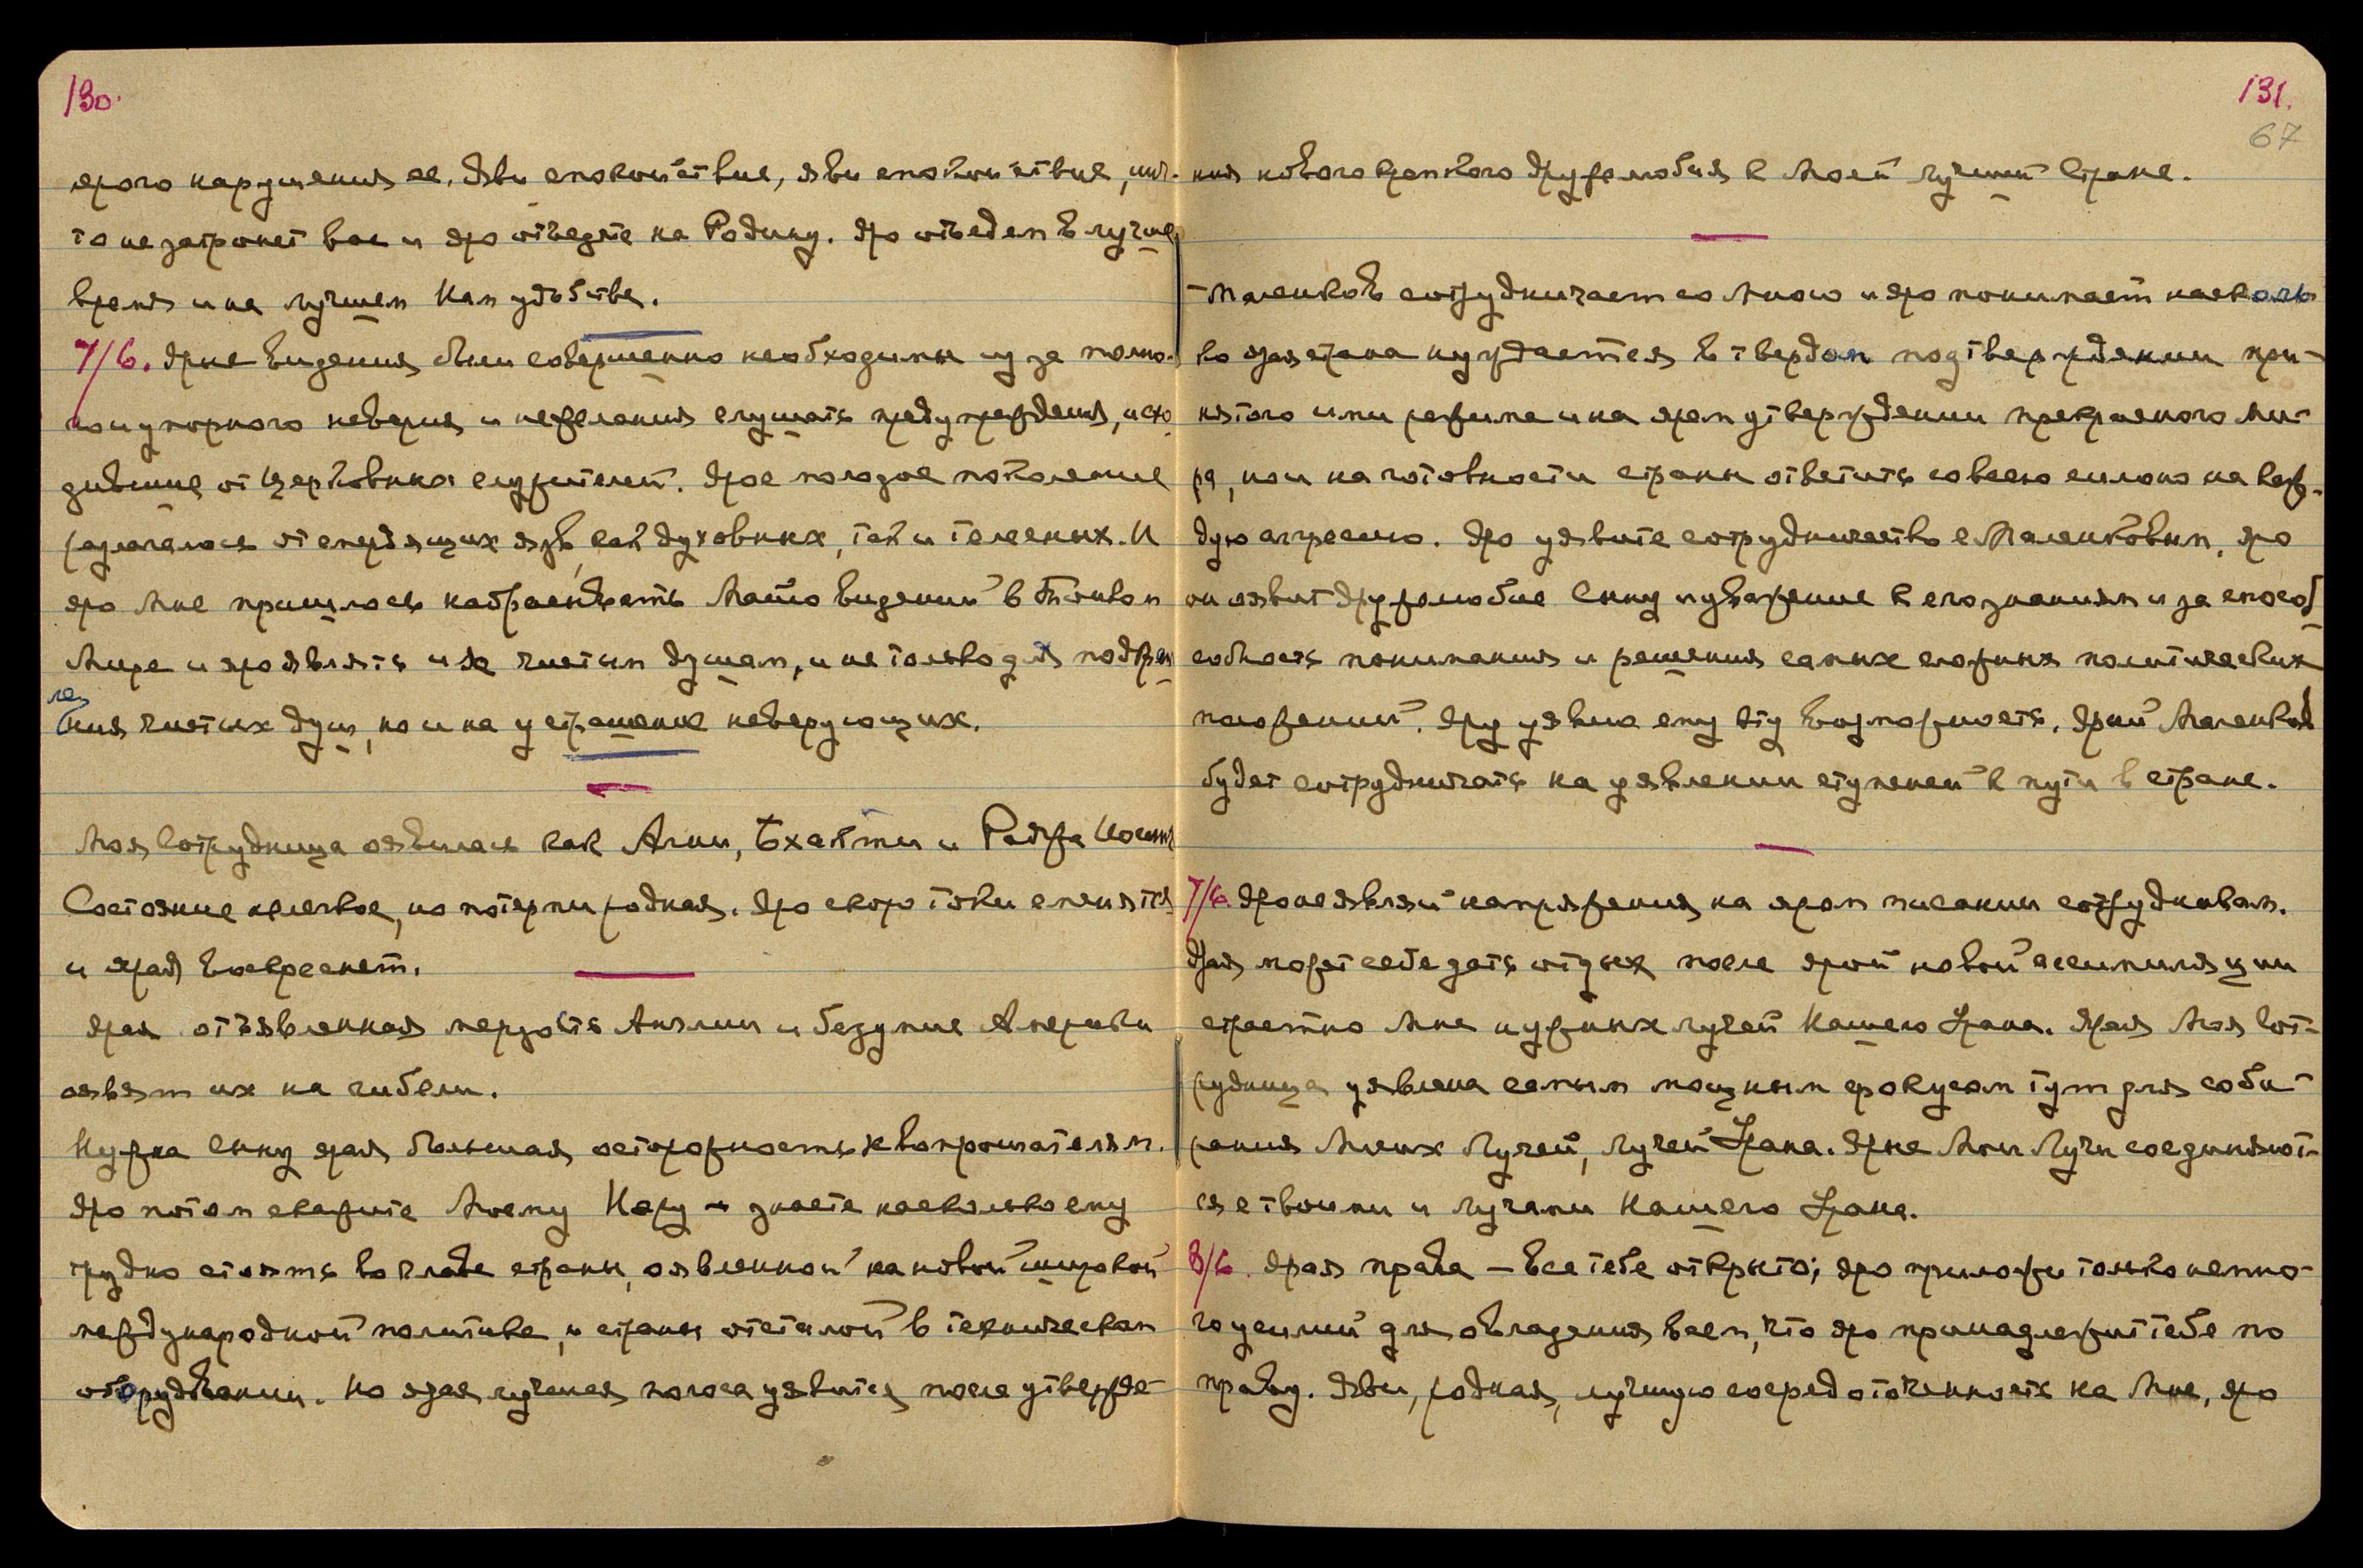 130.
ярого нарушения ее. Яви спокойствие, яви спокойствие, нич-
то не затронет вас и яро отъедете на Родину. Яро отъедем в лучшее
время и на лучшем Нам удобстве.
7/6. Ярые видения были совершенно необходимы из за полно-
го упорного неверия и нежелания слушать предупреждения, исхо
дившие от церковных служителей. Ярое молодое поколение
разлагалось от смердящих язв, как духовных, так и телесных. И
яро Мне пришлось набрасывать Мато видений в Тонком
Мире и яро являть их чистым душам, и не только для подкреп
ления чистых душ, но и на устрашение неверующих.
Моя Сотрудница оявилась как Агни, Бхакти и Раджа Иогиня
Состояние нелегкое, но потерпи родная. Яро скоро токи сменятся
и ярая воскреснет.
Ярая отъявленная мерзость Англии и безумие Америки
оявят их на гибели.
Нужна Сыну ярая большая осторожность к вопрошателям.
Яро потом скажите Моему Неру — знаете насколько ему
трудно стоять во главе страны, оявленной на новой мировой
международной политике, и страны отсталой в техническом
оборудовании. Но ярая лучшая полоса уявится после утвержде-
131.
67
ния нового крепкого дружелюбия к Моей лучшей Стране.
— Маленков сотрудничает со Мною и яро понимает насколь
ко ярая страна нуждается в твердом подтверждении при-
нятого ими режима и на яром утверждении прекрасного Ми-
ра, но и на готовности страны ответить со всею силою на каж-
дую агрессию. Яро уявите сотрудничество с Маленковым, яро
он оявит дружелюбие Сыну и уважение к его знаниям и за способ
собность понимания и решения самых сложных политических
положений. Яру уявлю ему эту возможность. Ярый Маленков
будет сотрудничать на уявлении ступеней к пути в стране.
7/6. Яро не являй напряжения на яром писании сотрудникам.
Ярая может себе дать отдых после ярой новой ассимиляции
страстно Мне нужных лучей Нашего Урана. Ярая Моя Сот-
рудница уявлена самым мощным фокусом тут для соби-
рания Моих Лучей, Лучей Урана. Ярые Мои Лучи соединяют-
ся с твоими и лучами Нашего Урана.
8/6. Ярая права — все тебе открыто; яро приложи только немно-
го усилий для овладения всем, что яро принадлежит тебе по
праву. Яви, родная, лучшую сосредоточенность на Мне, яро